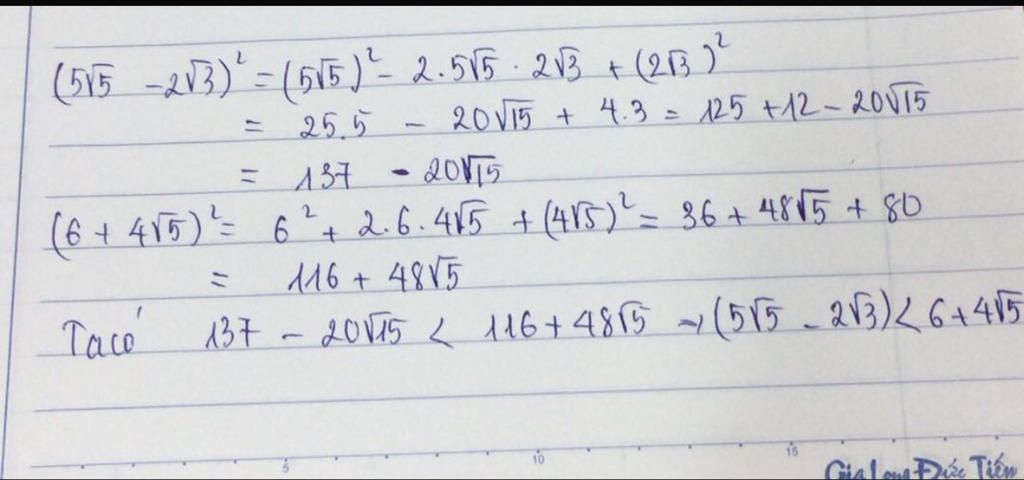 (5√5 - 2√3)² = (5√5)² - 2.5√5 . 2√3 + (2√3)²
= 25.5 - 20√15 + 4.3 = 125 + 12 - 20√15
= 137 - 20√15
(6 + 4√5)² = 6² + 2.6.4√5 + (4√5)² = 36 + 48√5 + 80
= 116 + 48√5
Ta có 137 - 20√15 < 116 + 48√5 → (5√5 - 2√3) < 6 + 4√5
5 10 15
Gia Long Đức Tiến